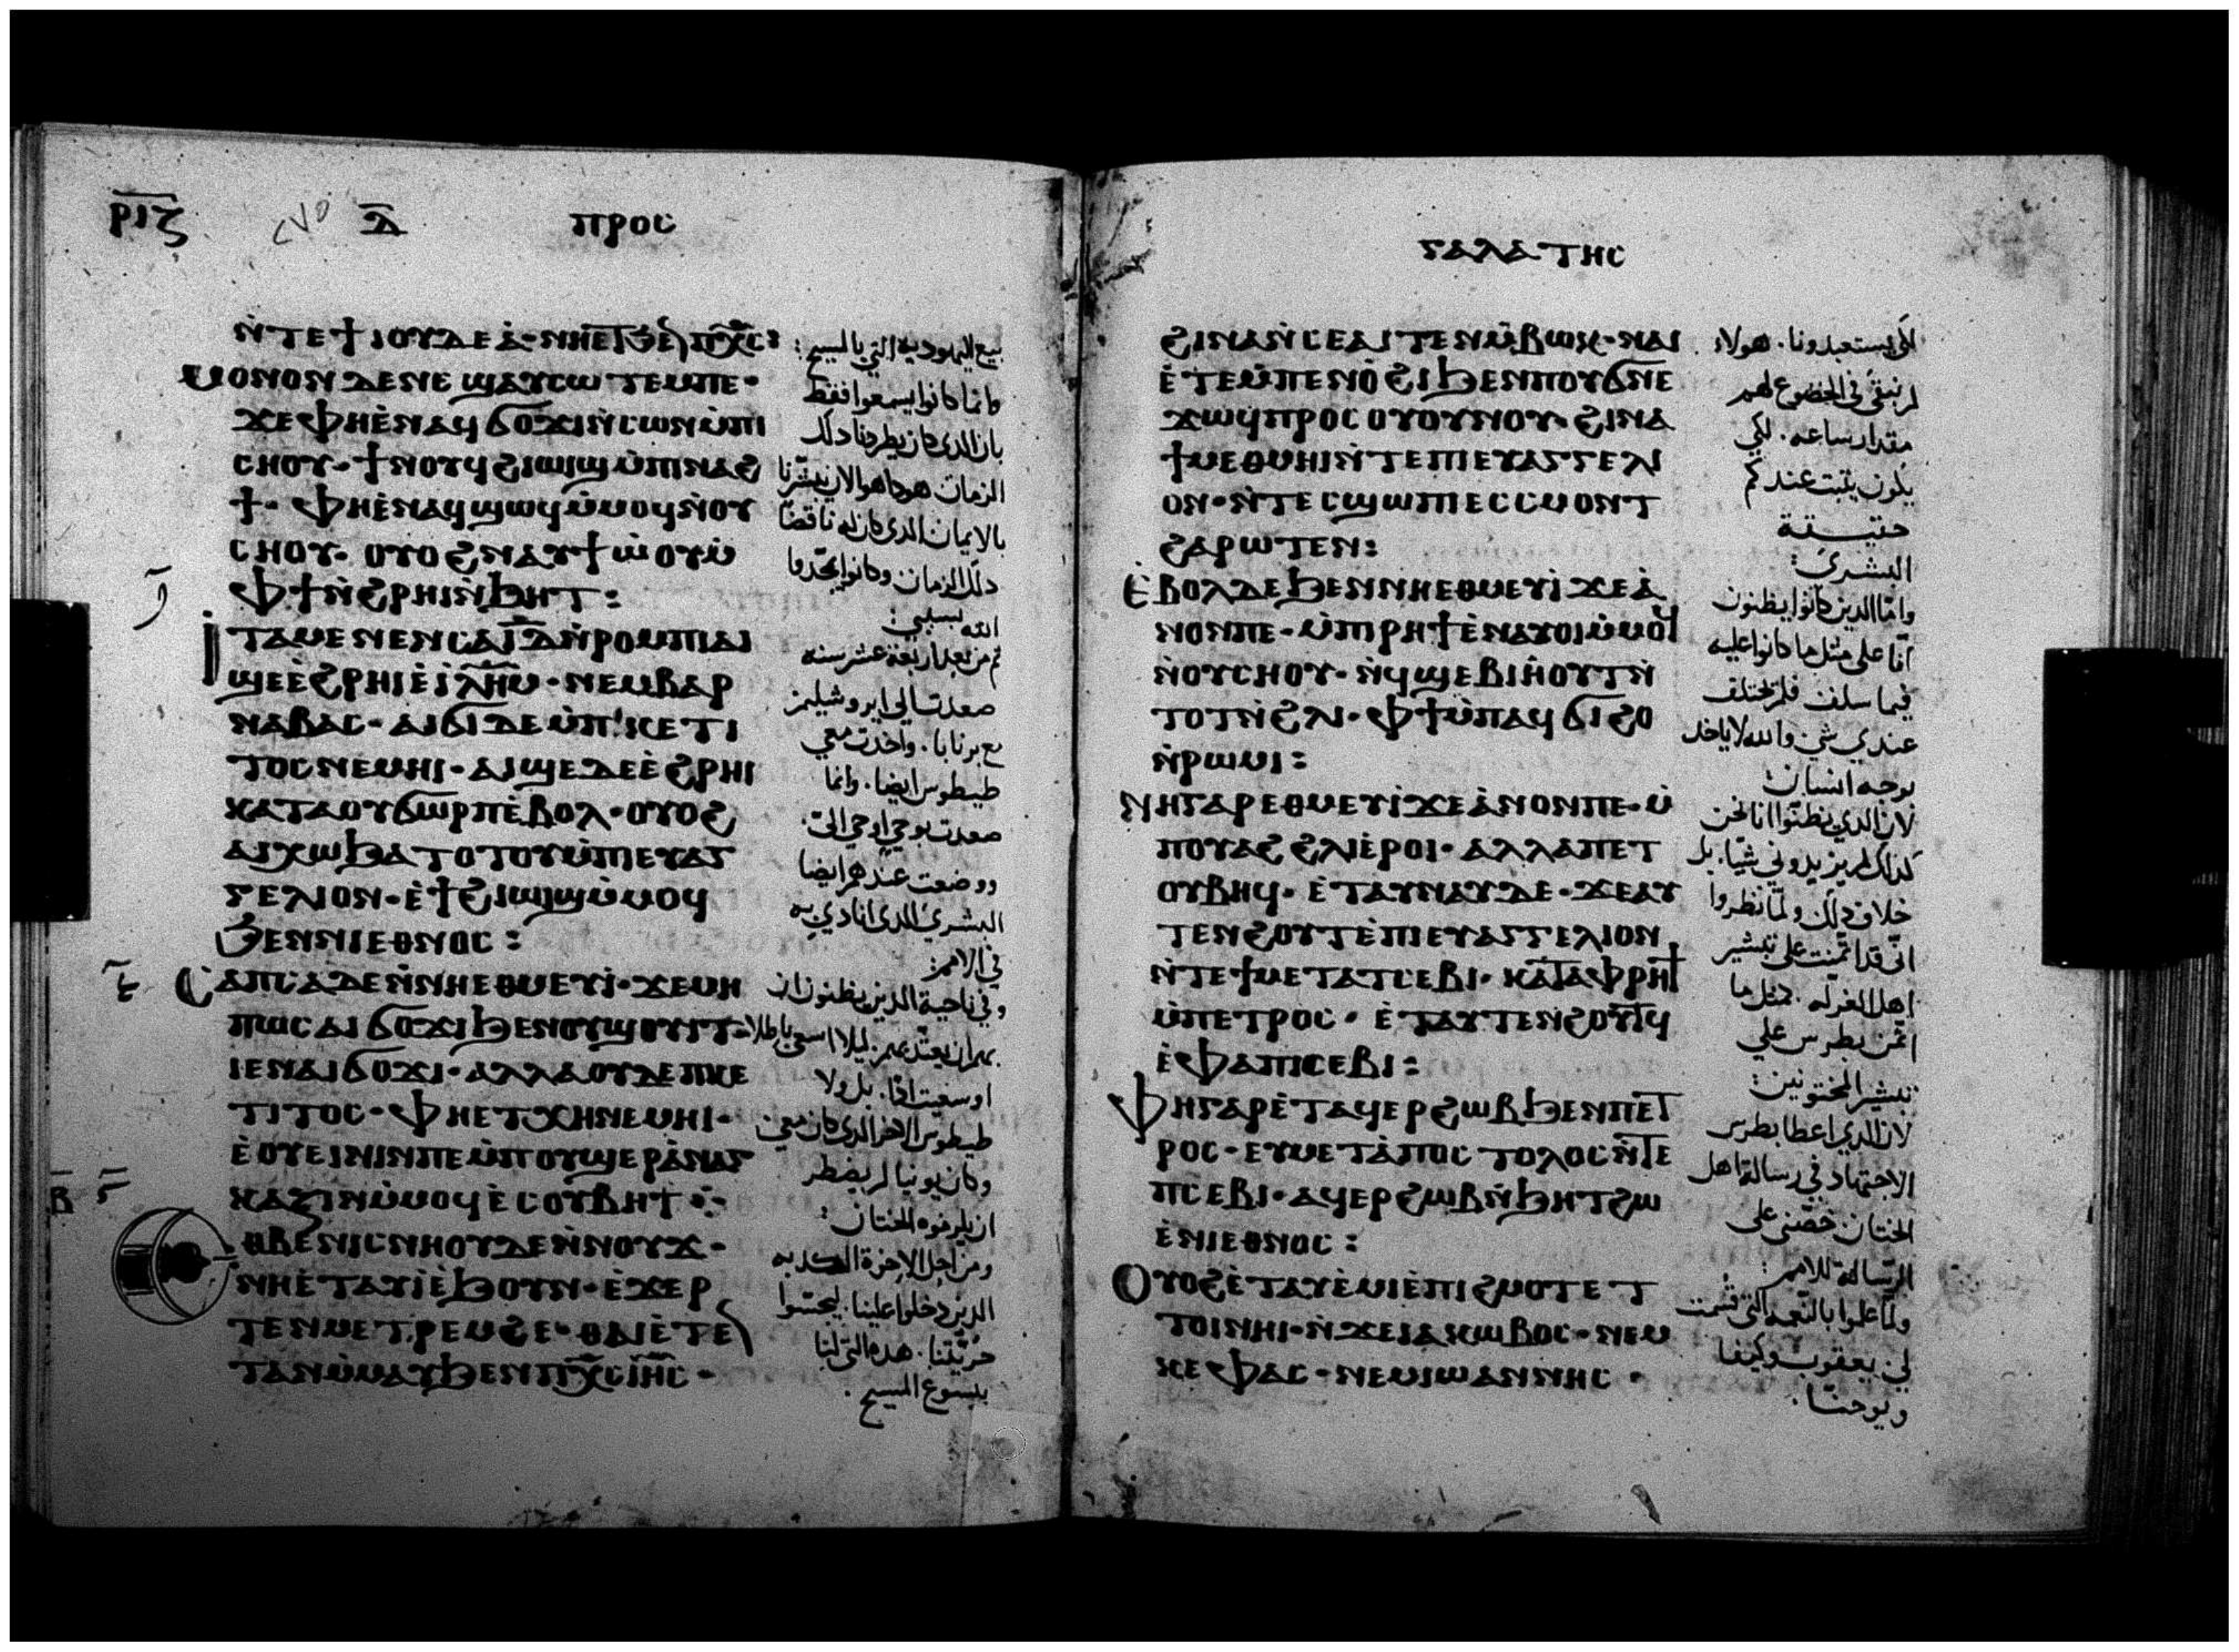 ⲣⲓⲍ
ⲇ
ⲡⲣⲟⲥ
ⲛ̀ⲧⲉϯⲓⲟⲩⲇⲉⲁ̀·
ⲙⲟⲛⲟⲛ ⲇⲉ ⲛⲉ ϣⲁⲩⲥⲱⲧⲉⲙ ⲡⲉ·
ϫⲉ ⲫⲏⲉ̀ⲛⲁϥϭⲟϫⲓ ⲛ̀ⲥⲱⲛ ⲙ̀ⲡⲓ
ⲥⲏⲟⲩ· ϯⲛⲟⲩ ϥϩⲓⲱⲓϣ ⲙ̀ⲡⲓⲛⲁϩ
ϯ· ⲫⲏⲉ̀ⲛⲁϥϣⲱϥ ⲙ̀ⲙⲟϥ ⲛ̀ⲟⲩ
ⲥⲏⲟⲩ· ⲟⲩⲟϩ ⲛⲁⲩϯⲱ̀ⲟⲩ ⲙ̀
ⲫϯ ⲛ̀ϩⲣⲏⲓ ⲛ̀ϧⲏⲧ:
ⲓⲧⲁ ⲙⲉⲛⲉⲛⲥⲁ ⲓⲇ ⲛ̀ⲣⲟⲙⲡⲓ ⲁⲓ
ϣⲉ ⲉ̀ϩⲣⲏⲓ ⲉ̀ⲓ̀ⲗⲏⲙ· ⲛⲉⲙ ⲃⲁⲣ
ⲛⲁⲃⲁⲥ· ⲁⲓϭⲓ ⲇⲉ ⲙ̀ⲡⲕⲉⲧⲓ
ⲧⲟⲥ ⲛⲉⲙⲏⲓ· ⲁⲓϣⲉ ⲇⲉ ⲉ̀ϩⲣⲏⲓ
ⲕⲁⲧⲁ ⲟⲩϭⲱⲣⲡ ⲉ̀ⲃⲟⲗ· ⲟⲩⲟϩ
ⲁⲓⲭⲱ ϧⲁⲧⲟⲧⲟⲩ ⲙ̀ⲡⲓⲉⲩⲁⲅ
ⲅⲉⲗⲓⲟⲛ· ⲉ̀ϯϩⲓⲱⲓϣ ⲙ̀ⲙⲟϥ
ϧⲉⲛ ⲛⲓⲉⲑⲛⲟⲥ:
ⲥⲁⲡⲥⲁ ⲇⲉ ⲛ̀ⲛⲏⲉⲑⲙⲉⲩⲓ̀· ϫⲉ ⲙⲏ
ⲡⲱⲥ ⲁⲓϭⲟϫⲓ ϧⲉⲛ ⲟⲩϣⲟⲩⲓⲧ·
ⲓⲉ ⲛⲁⲓϭⲟϫⲓ· ⲁⲗⲗⲁ ⲟⲩⲇⲉ ⲡⲕⲉ
ⲧⲓⲧⲟⲥ· ⲫⲏⲉⲧⲭⲏ ⲛⲉⲙⲏⲓ·
ⲉ̀ⲟⲩⲉⲓⲛⲓⲛ ⲡⲉ ⲙ̀ⲡⲟⲩϣⲉⲣⲁ̀ⲛⲁⲅ
ⲕⲁⲍⲓⲛ ⲙ̀ⲙⲟϥ ⲉ̀ⲥⲟⲩⲃⲏⲧ
ⲉⲑⲃⲉ ⲛⲓⲥⲛⲏⲟⲩ ⲇⲉ ⲛ̀ⲛⲟⲩϫ·
ⲛⲏⲉ̀ⲧⲁⲩⲓ̀ ⲉ̀ϧⲟⲩⲛ· ⲉ̀ϫⲉⲣ
ⲧⲉⲛⲙⲉⲧⲣⲉⲙϩⲉ· ⲑⲁⲓ ⲉ̀ⲧⲉ
ⲧⲁⲛ ⲙ̀ⲙⲁⲩ ϧⲉⲛ ⲡⲭⲥ ⲓⲏⲥ·
بيع اليهوديه التي بالمسيح:
وانما كانوا يسمعوا فقط
بان الذي كان يطردنا دلك
الزمان هودا هوالان يبشرنا
بالايمان الدي كان له ناقضا
دلك الزمان وكانوا يمجدوا
الله بسببي:
ثم من بعد اربعة عشر سنه
صعدت الي ايروشليم
مع برنابا. واخدت معي
طيطوس ايضا. وانما
صعدت بوحي اوحي الي.
ووضعت عندهم ايضا
البشري الدي انادي به
في الامم:
وفي ناحية الدين يظنون ان
او سعيت انا. بل ولا
طيطوس الاخر الدي كان معي
وكان يونيا لم يضطر
ان يلزموه الختان:
ومن اجل الاخوة الكدبه
الدين دخلوا علينا. ليجسوا
حريتنا. هده التي لنا
بيسوع المسيح.
ⲅⲁⲗⲁⲧⲏⲥ
ϩⲓⲛⲁ ⲛ̀ⲥⲉⲁⲓⲧⲉⲛ ⲙ̀ⲃⲱⲕ· ⲛⲁⲓ
ⲉ̀ⲧⲉ ⲙ̀ⲡⲉⲛⲟ̀ϩⲓ ϧⲉⲛ ⲡⲟⲩϭⲛⲉ
ϫⲱϥ ⲡⲣⲟⲥ ⲟⲩⲟⲩⲛⲟⲩ· ϩⲓⲛⲁ
ϯⲙⲉⲑⲙⲏⲓ ⲛ̀ⲧⲉ ⲡⲓⲉⲩⲁⲅⲅⲉⲗⲓ
ⲟⲛ· ⲛ̀ⲧⲉⲥϣⲱⲡⲓ ⲉⲥⲥⲙⲟⲛⲧ
ϩⲁⲣⲱⲧⲉⲛ:
ⲉ̀ⲃⲟⲗ ⲇⲉ ϧⲉⲛ ⲛⲏⲉⲑⲙⲉⲩⲓ̀ ϫⲉ ⲁ̀
ⲛⲟⲛ ⲡⲉ· ⲙ̀ⲡⲣⲏϯ ⲉ̀ⲛⲁⲩⲟⲓ ⲙ̀ⲙⲟϥ
ⲛ̀ⲟⲩⲥⲏⲟⲩ· ⲛ̀ϥϣⲉⲃⲓⲏⲟⲩⲧ ⲛ̀
ⲧⲟⲧ ⲛ̀ϩⲗⲓ· ⲫϯ ⲙ̀ⲡⲁϥϭⲓϩⲟ
ⲛ̀ⲣⲱⲙⲓ:
ⲛⲏⲅⲁⲣ ⲉⲑⲙⲉⲩⲓ̀ ϫⲉ ⲁ̀ⲛⲟⲛ ⲡⲉ· ⲙ̀
ⲡⲟⲩⲁϩ ϩⲗⲓ ⲉ̀ⲣⲟⲓ· ⲁⲗⲗⲁ ⲡⲉⲧ
ⲟⲩⲃⲏϥ· ⲉ̀ⲧⲁⲩⲛⲁⲩ ⲇⲉ· ϫⲉ ⲁⲩ
ⲧⲉⲛϩⲟⲩⲧ ⲉ̀ⲡⲓⲉⲩⲁⲅⲅⲉⲗⲓⲟⲛ
ⲛ̀ⲧⲉ ϯⲙⲉⲧⲁⲧⲥⲉⲃⲓ· ⲕⲁⲧⲁ ⲫⲣⲏϯ
ⲙ̀ⲡⲉⲧⲣⲟⲥ· ⲉ̀ⲧⲁⲩⲧⲉⲛϩⲟⲩⲧϥ
ⲉ̀ⲫⲁⲡⲓⲥⲉⲃⲓ:
ⲫⲏⲅⲁⲣ ⲉ̀ⲧⲁϥⲉⲣϩⲱⲃ ϧⲉⲛ ⲡⲉⲧ
ⲣⲟⲥ· ⲉⲩⲙⲉⲧⲁ̀ⲡⲟⲥⲧⲟⲗⲟⲥ ⲛ̀ⲧⲉ
ⲡⲥⲉⲃⲓ· ⲁϥⲉⲣϩⲱⲃ ⲛ̀ϧⲏⲧ ϩⲱ
ⲉ̀ⲛⲓⲉⲑⲛⲟⲥ:
ⲟⲩⲟϩ ⲉ̀ⲧⲁⲩⲉ̀ⲙⲓ ⲉ̀ⲡⲓϩⲙⲟⲧ ⲉⲧ
ⲧⲟⲓ ⲛⲏⲓ· ⲛ̀ϫⲉ ⲓⲁⲕⲱⲃⲟⲥ· ⲛⲉⲙ
ⲕⲉⲫⲁⲥ· ⲛⲉⲙ ⲓⲱⲁⲛⲛⲏⲥ·
لكي يستعبدونا. هولاء
لم نبقي في الخضوع لهم
مقدار ساعه. لكي
يكون يثبت عندكم
حقيقة
البشري:
واما الدين كانوا يظنون
انا علي مثل ما كانوا عليه
فيما سلف فلم يختلف
عندي شي والله لاياخد
بوجه انسان:
لان الدي يظنوا انا نحن
كدلك لم يزيدوني شيا. بل
خلاف دلك ولما نظروا
اني قد ائتمنت علي تبشير
اهل الغرله. مثل ما
ائتمن بطرس علي
تبشير المختونين:
لان الدي اعطا بطرس
الاجتهاد في رسالة اهل
الختان خصني علي
الرسالة للامم:
ولما علموا بالنعمه التي قسمت
لي يعقوب وكيفا
ويوحنا.